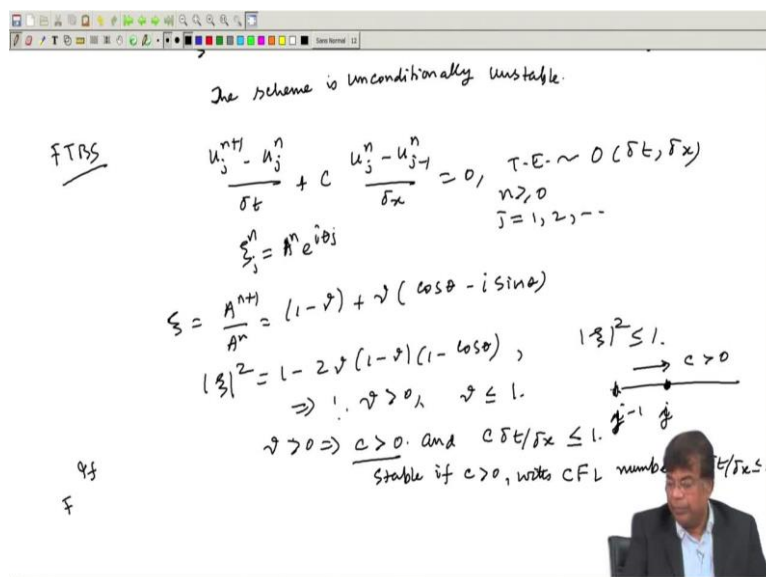 Sans Normal 12
The scheme is unconditionally unstable.
FTBS
(u_j^{n+1} - u_j^n)/δt + C (u_j^n - u_{j-1}^n)/δx = 0, T.E. ~ O(δt, δx)
n ≥ 0
j = 1, 2, --
ξ_j^n = A^n e^{iθj}
ξ = A^{n+1}/A^n = (1-ν) + ν(cosθ - i sinθ)
|ξ|^2 = 1 - 2ν(1-ν)(1-cosθ), |ξ|^2 ≤ 1.
⇒ ∵ ν>0, ν ≤ 1.
→ c>0
j-1 j
ν>0 ⇒ c>0. and cδt/δx ≤ 1.
Stable if c>0, with CFL number δt/δx ≤
If
F